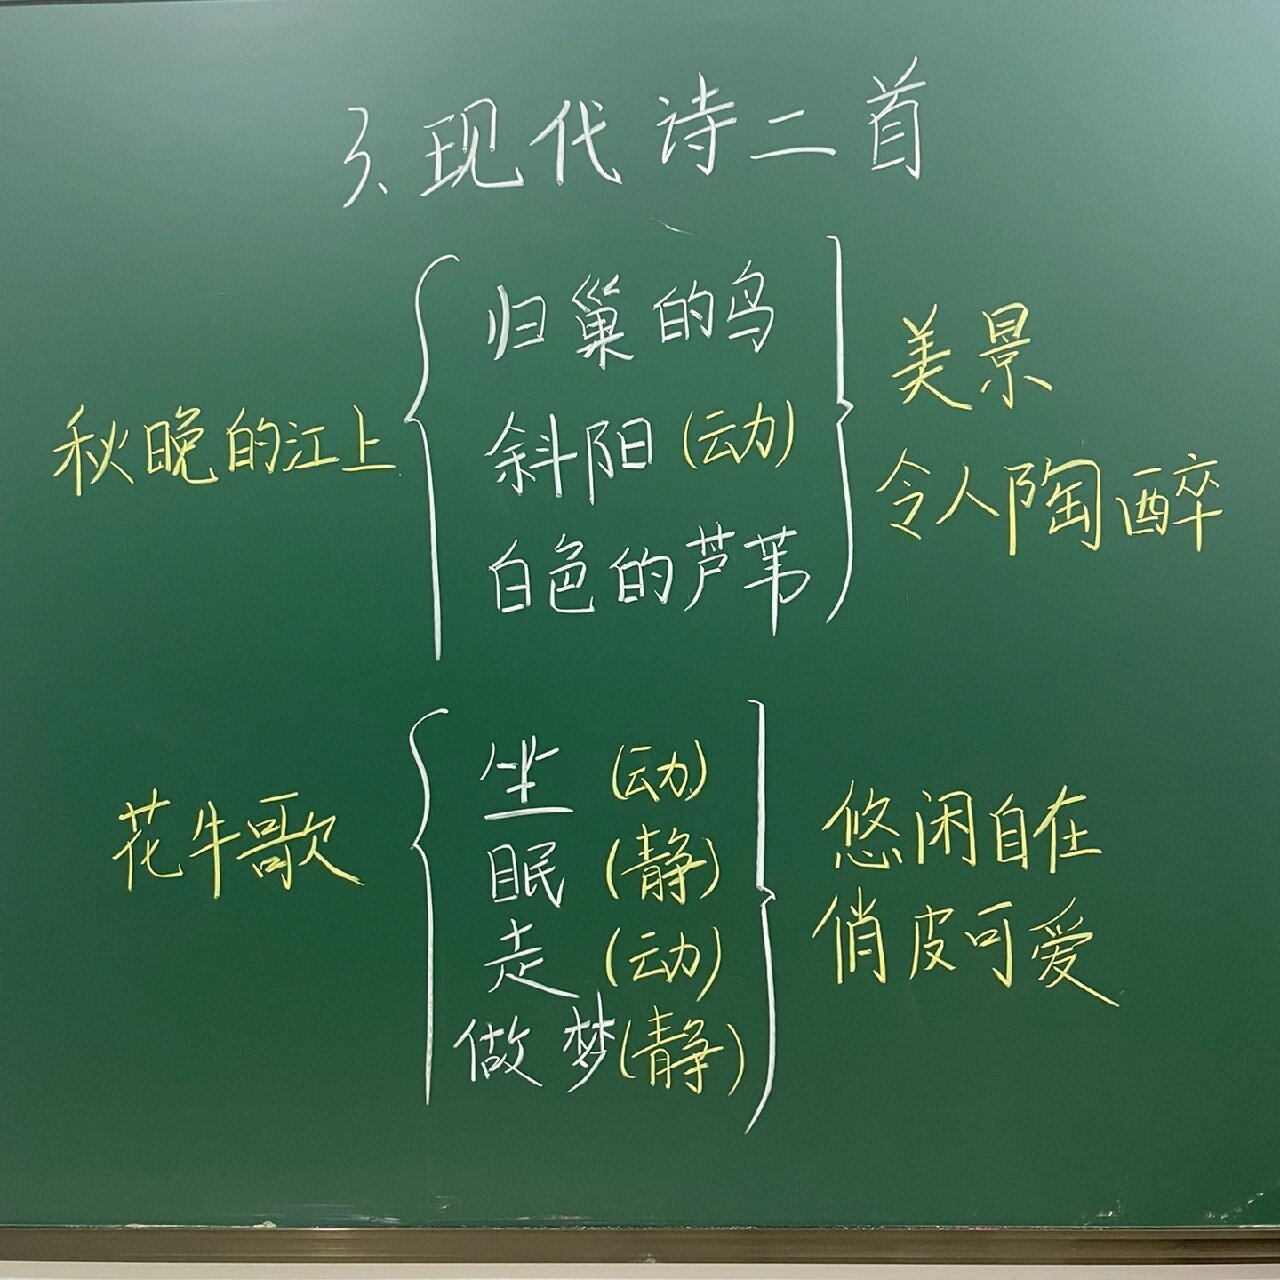 3、现代诗二首
秋晚的江上
归巢的鸟
斜阳(动)
白色的芦苇
美景
令人陶醉
花牛歌
坐(动)
眠(静)
走(动)
做梦(静)
悠闲自在
俏皮可爱